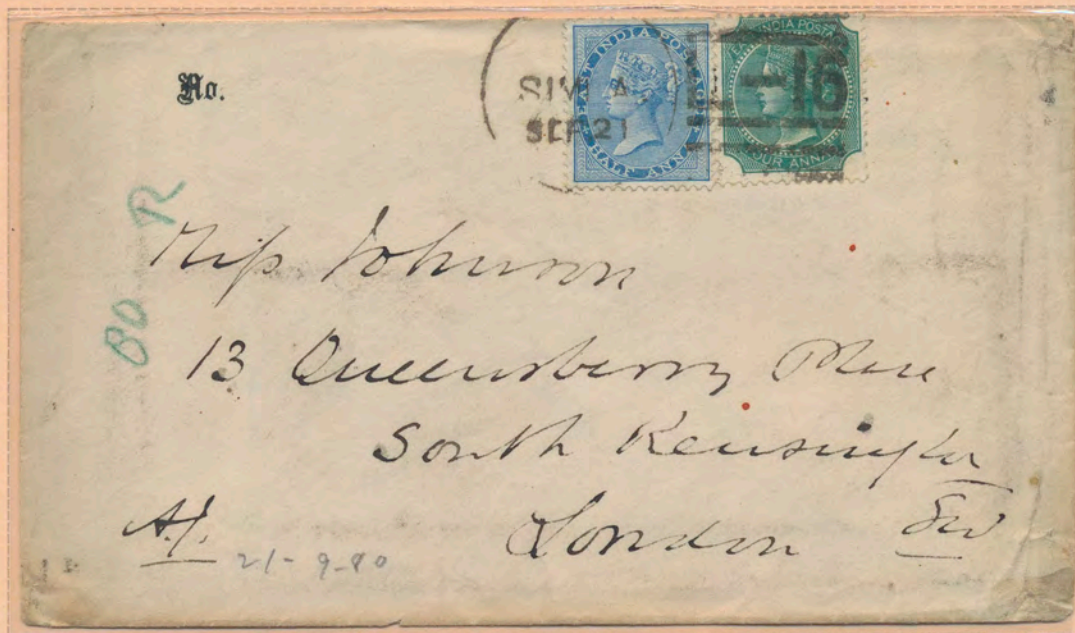 No.
SIMLA
SEP 21
EAST INDIA POSTAGE
HALF ANNA
EAST INDIA POSTAGE
FOUR ANNAS
L-16
R
BO
Miss Johnson
13 Queensberry Place
South Kensington
London SW
A.J.
21-9-80